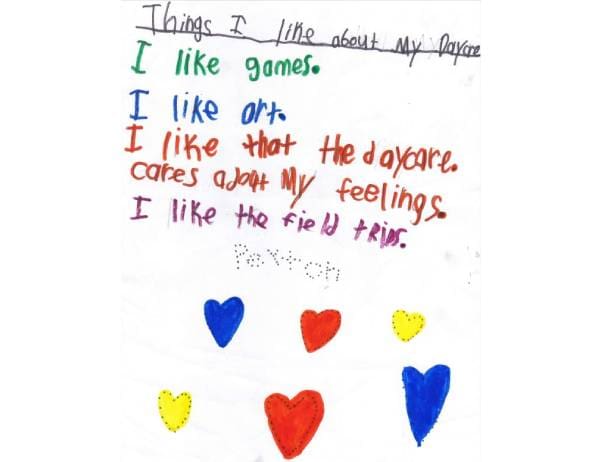 Things I like about My Daycare
I like games.
I like art.
I like that the daycare.
cares about My feelings.
I like the field trips.
Peyton